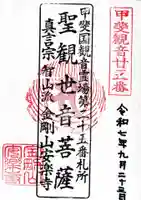 甲斐観音廿五番
甲斐国観音霊場第二十五番札所
聖観世音菩薩
真言宗智山派金剛山安楽寺
令和七年九月二十三日